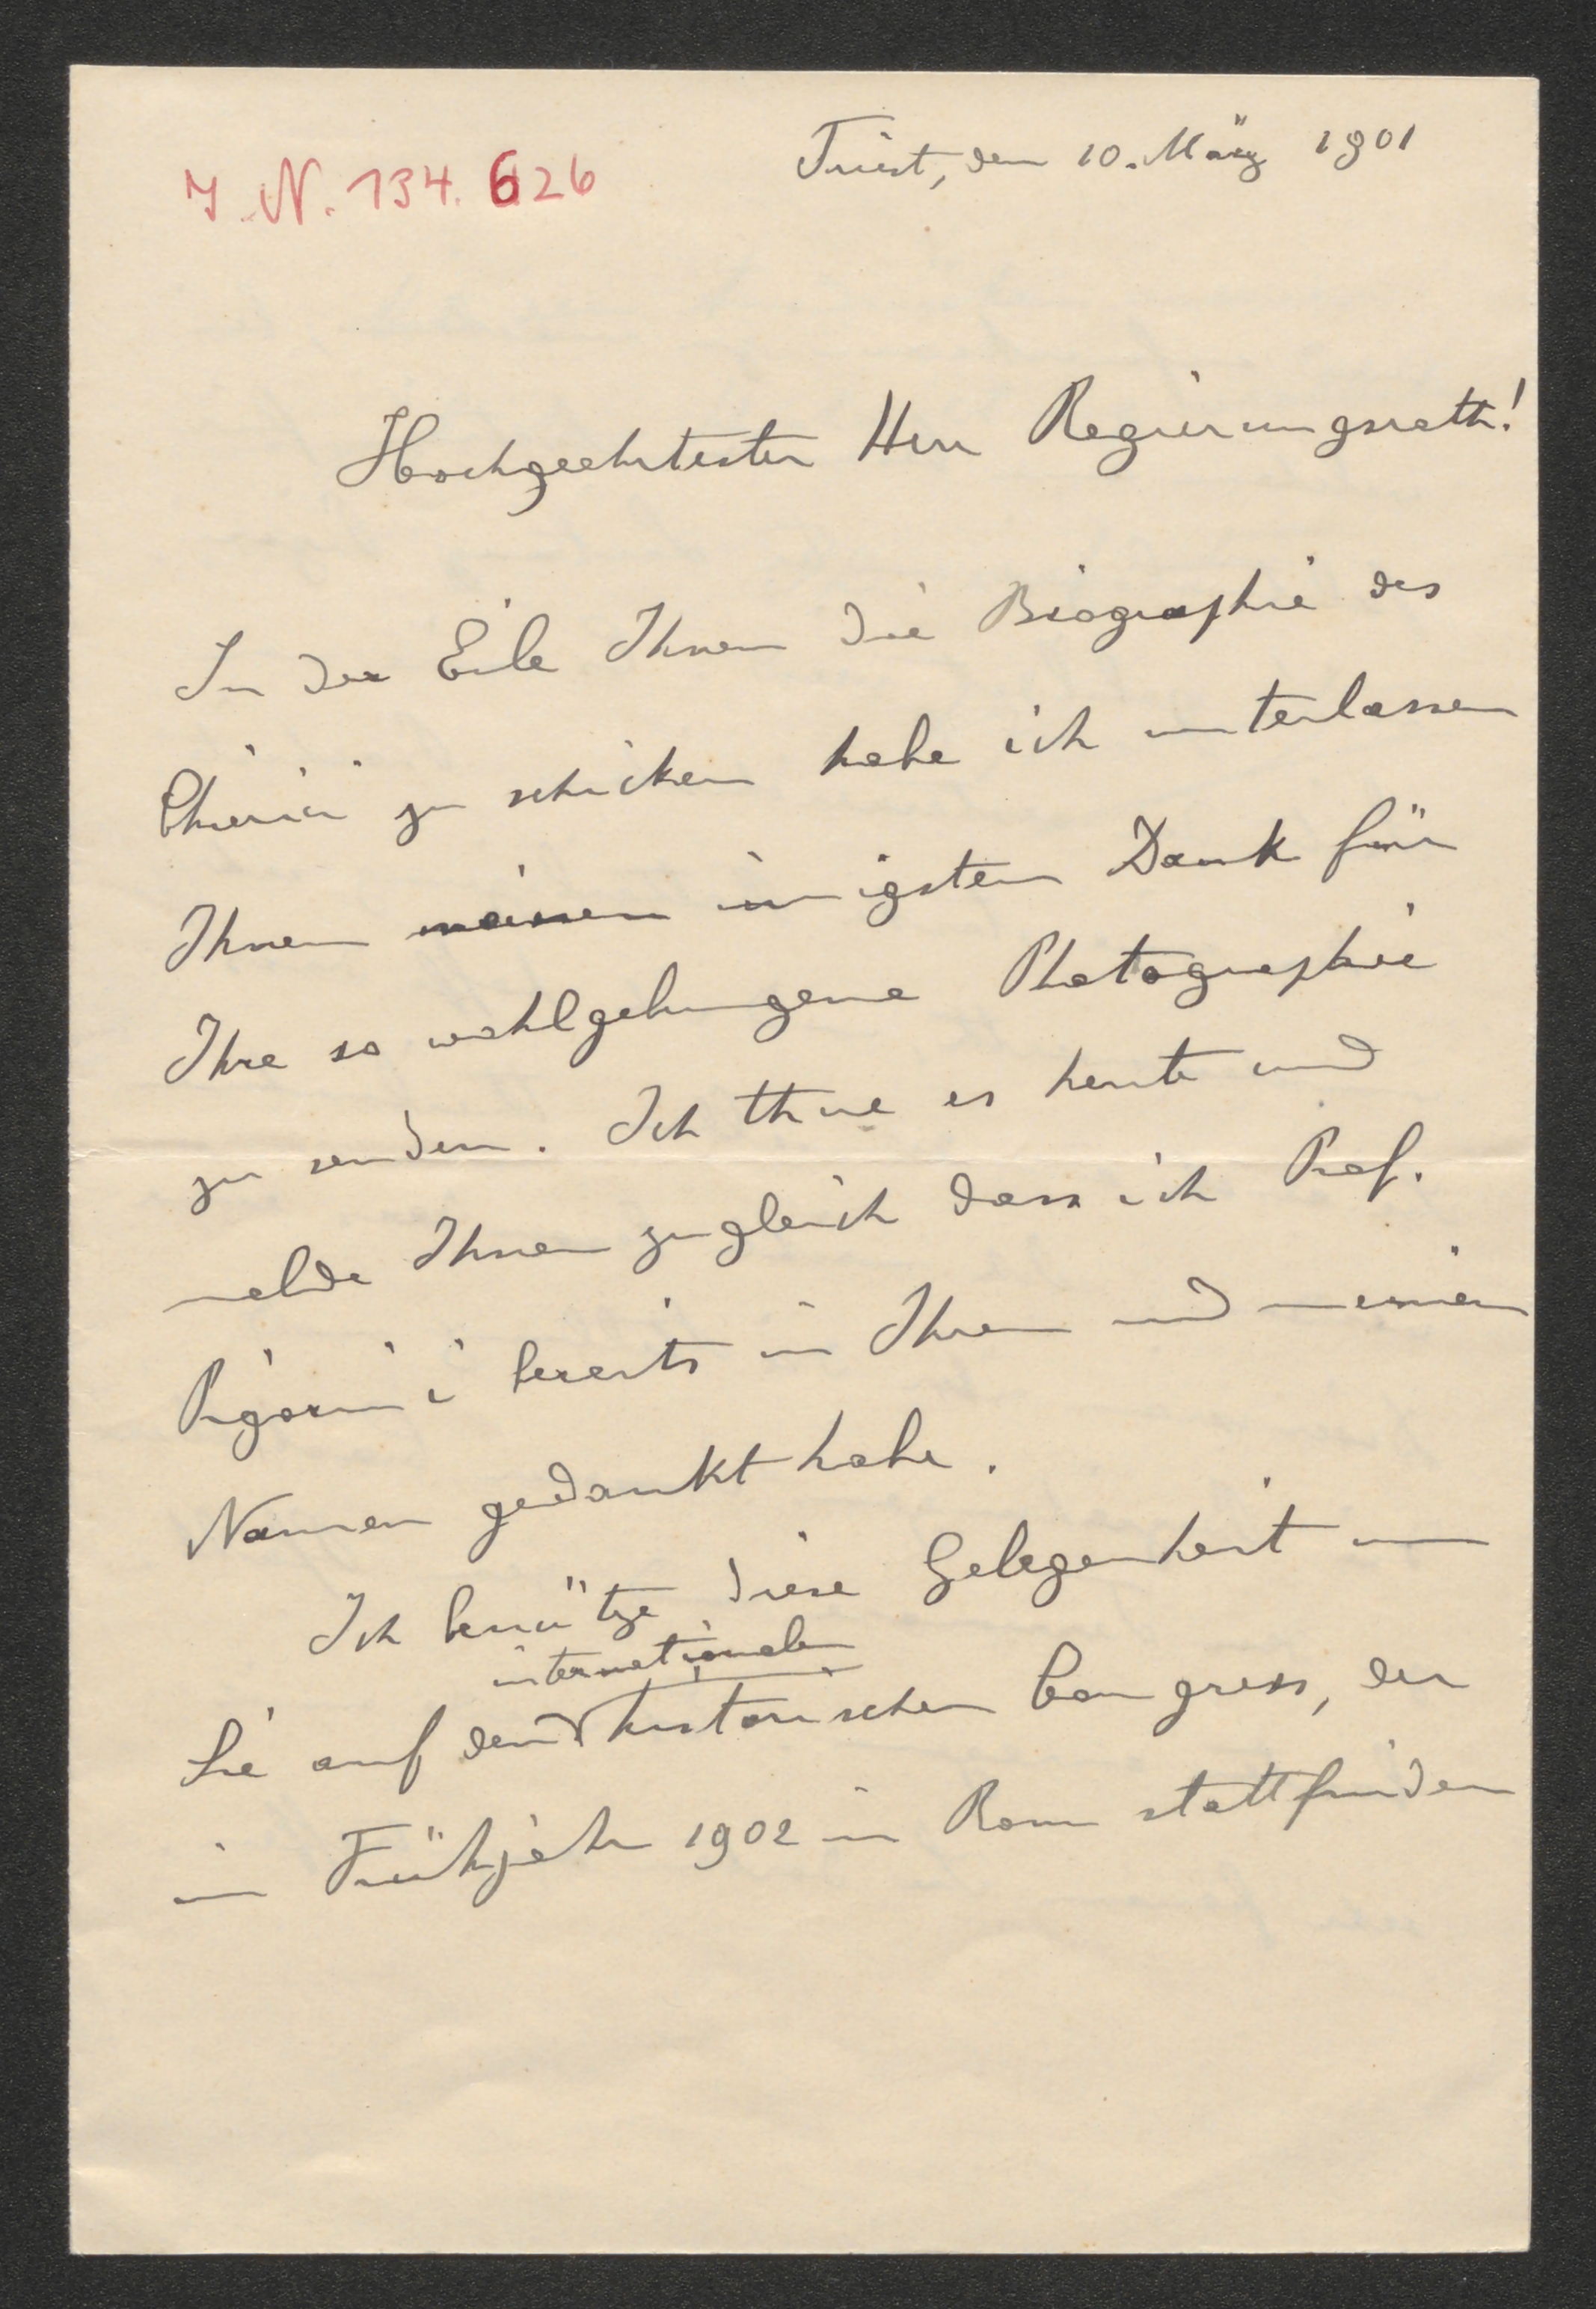 I. N. 134.626
Triest, den 10. März 1901
Hochgeehrtester Herr Regierungsrath!
In der Eile Ihnen die Biographie des
Chierici zu schicken habe ich unterlassen
Ihnen meinen innigsten Dank für
Ihre so wohlgelungene Photographie
zu senden. Ich thue es heute und
melde Ihnen zugleich dass ich Prof.
Pigorini bereits in Ihrem und meinem
Namen gedankt habe.
Ich benütze diese Gelegenheit um
internationalen
Sie auf den historischen Congress, der
im Frühjahr 1902 in Rom stattfinden